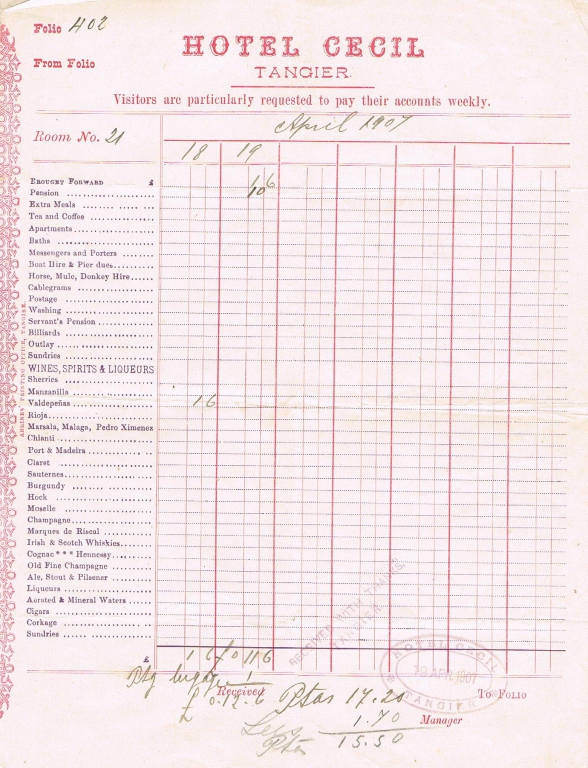 Folio 402
HOTEL CECIL
From Folio
TANGIER.
Visitors are particularly requested to pay their accounts weekly.
Room No. 21
April 1907
18 19
BROUGHT FORWARD £
Pension 10 6
Extra Meals
Tea and Coffee
Apartments
Baths
Messengers and Porters
Boat Hire & Pier dues
Horse, Mule, Donkey Hire
Cablegrams
Postage
Washing
Servant's Pension
Billiards
Outlay
Sundries
WINES, SPIRITS & LIQUEURS
Sherries
Manzanilla
Valdepeñas 1 6
Rioja
Marsala, Malaga, Pedro Ximenez
Chianti
Port & Madeira
Claret
Sauternes
Burgundy
Hock
Moselle
Champagne
Marques de Riscal
Irish & Scotch Whiskies
Cognac * * * Hennessy
Old Fine Champagne
Ale, Stout & Pilsener
Liqueurs
Aerated & Mineral Waters
Cigars
Corkage
Sundries
RECEIVED WITH THANKS,
TANGIER.
HOTEL CECIL
19 APR 1907
TANGIER
£ 1 6 £0 11 6
luggage 1
Received To FOLIO
£ 0.12.6 Ptas 17.20
Less 1.70 Manager
Ptas 15.50
PRINTING OFFICE, TANGIER.